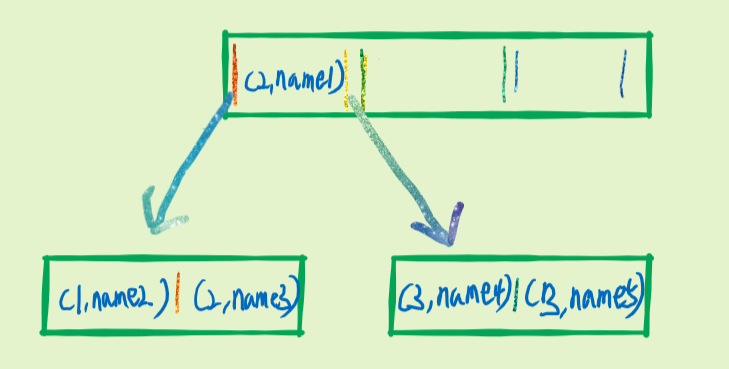 (2,name1)
(1,name2) | (2,name3)
(3,name4) | (13,name5)